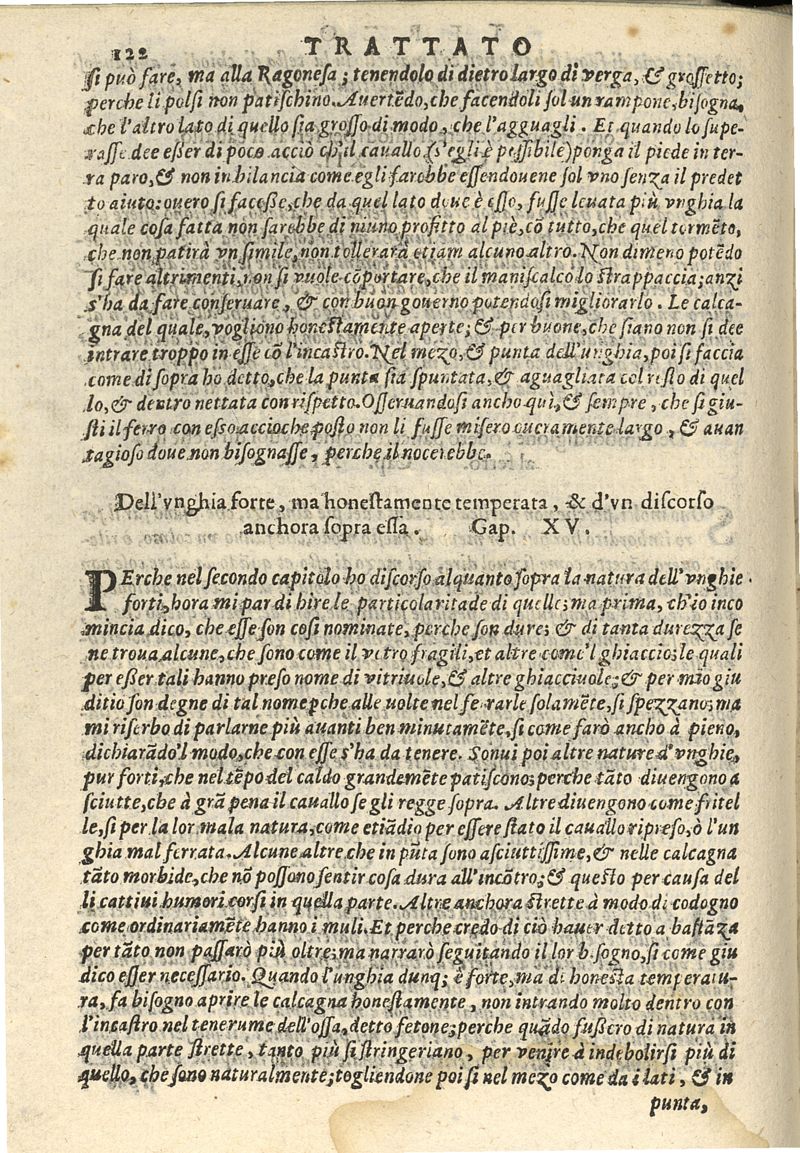 122
TRATTATO
si può fare, ma alla Ragonesa; tenendolo di dietro largo di verga, & grossetto;
perche li polsi non patischino. Auertēdo, che facendoli sol un rampone, bisogna,
che l'altro lato di quello sia grosso di modo, che l'agguagli. Et quando lo supe-
rasse dee esser di poco acciò ch'il cauallo (s'egli è possibile) ponga il piede in ter-
ra paro, & non in bilancia come egli farebbe essendouene sol vno senza il predet
to aiuto: ouero si facesse, che da quel lato doue è esso, fusse leuata più vnghia la
quale cosa fatta non sarebbe di niuno profitto al piè, cō tutto, che quel termēto,
che non patirà vn simile, non tollerarà etiam alcuno altro. Non dimeno potēdo
si fare altrimenti, non si vuole cōportare, che il maniscalco lo strappaccia; anzi
s'ha da fare conseruare, & con buon gouerno potendosi migliorarlo. Le calca-
gna del quale, vogliono honestamente aperte; & per buone, che siano non si dee
intrare troppo in esse cō l'incastro. Nel mezo, & punta dell'unghia, poi si faccia
come di sopra ho detto, che la punta sia spuntata, & aguagliata col resto di quel
lo, & dentro nettata con rispetto. Osseruandosi ancho quì, & sempre, che si giu-
sti il ferro con esso accioche posto non li fusse misero oueramente largo, & auan
tagioso doue non bisognasse, perche il nocerebbe.
Dell'vnghia forte, ma honestamente temperata, & d'vn discorso
anchora sopra essa. Gap. XV.
PErche nel secondo capitolo ho discorso alquanto sopra la natura dell'vnghie
forti, hora mi par di hire le particolaritade di quelle; ma prima, ch'io inco
mincia dico, che esse son cosi nominate, perche son dure; & di tanta durezza se
ne troua alcune, che sono come il vetro fragili, et altre come'l ghiaccio; le quali
per esser tali hanno preso nome di vitriuole, & altre ghiacciuole; & per mio giu
ditio son degne di tal nome pche alle uolte nel ferrarle solamēte, si spezzano; ma
mi riserbo di parlarne più auanti ben minutamēte, si come farò ancho à pieno,
dichiarādo'l modo, che con esse s'ha da tenere. Sonui poi altre nature d'vnghie,
pur forti, che nel tēpo del caldo grandemēte patiscono; perche tāto diuengono a
sciutte, che à grā pena il cauallo se gli regge sopra. Altre diuengono come fritel
le, si per la lor mala natura, come etiādio per essere stato il cauallo ripreso, ò l'un
ghia mal ferrata. Alcune altre che in pūta sono asciuttissime, & nelle calcagna
tāto morbide, che nō possono sentir cosa dura all'incōtro; & questo per causa del
li cattiui humori corsi in quella parte. Altre anchora strette à modo di codogno
come ordinariamēte hanno i muli. Et perche credo di ciò hauer detto a bastāza
per tāto non passarò più oltre; ma narrarò seguitando il lor bisogno, si come giu
dico esser necessario. Quando l'unghia dunq; è forte, ma di honesta temperatu-
ra, fa bisogno aprire le calcagna honestamente, non intrando molto dentro con
l'incastro nel tenerume dell'ossa, detto fetone; perche quādo fussero di natura in
quella parte strette, tanto più si stringeriano, per venire à indebolirsi più di
quello, che sono naturalmente; togliendone poi si nel mezo come da i lati, & in
punta,